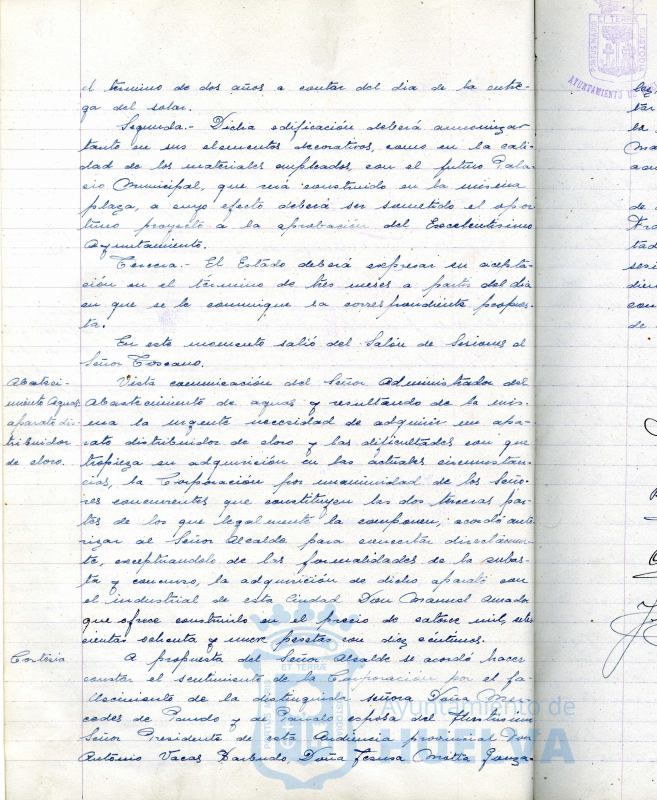 el término de dos años a contar del dia de la entre-
ga del solar.
Segunda.- Dicha edificación deberá armonizar
tanto en sus elementos decorativos, como en la cali-
dad de los materiales empleados, con el futuro Pala-
cio Municipal, que será construido en la misma
plaza, a cuyo efecto deberá ser sometido el opor-
tuno proyecto a la aprobación del Excelentísimo
Ayuntamiento.
Tercera.- El Estado deberá expresar su acepta-
ción en el término de tres meses a partir del dia
en que se le comunique la correspondiente propues-
ta.
En este momento salió del Salón de Sesiones el
Señor Toscano.
Abasteci-
miento Aguas
aparato dis-
tribuidor
de cloro.
Vista comunicación del Señor Administrador del
Abastecimiento de aguas y resultando de la mis-
ma la urgente necesidad de adquirir un apa-
rato distribuidor de cloro y las dificultades con que
tropieza su adquisición en las actuales circunstan-
cias, la Corporación por unanimidad de los Seño-
res concurrentes que constituyen las dos terceras par-
tes de los que legalmente la componen, acordó auto-
rizar al Señor Alcalde para concertar directamen-
te, exceptuandolo de las formalidades de la subas-
ta y concurso, la adquisición de dicho aparato con
el industrial de esta Ciudad Don Manuel Amador
que ofrece construirlo en el precio de catorce mil,
cientas ochenta y nueve pesetas con diez céntimos.
Cortesia
A propuesta del Señor Alcalde se acordó hacer
constar el sentimiento de la Corporación por el fa-
llecimiento de la distinguida señora Doña Mer-
cedes de Pando y de Pando esposa del Ilustrisimo
Señor Presidente de esta Audiencia provincial Don
Antonio Vacas Doña Jesusa Motta Gonza-
Ayuntamiento de
HUELVA